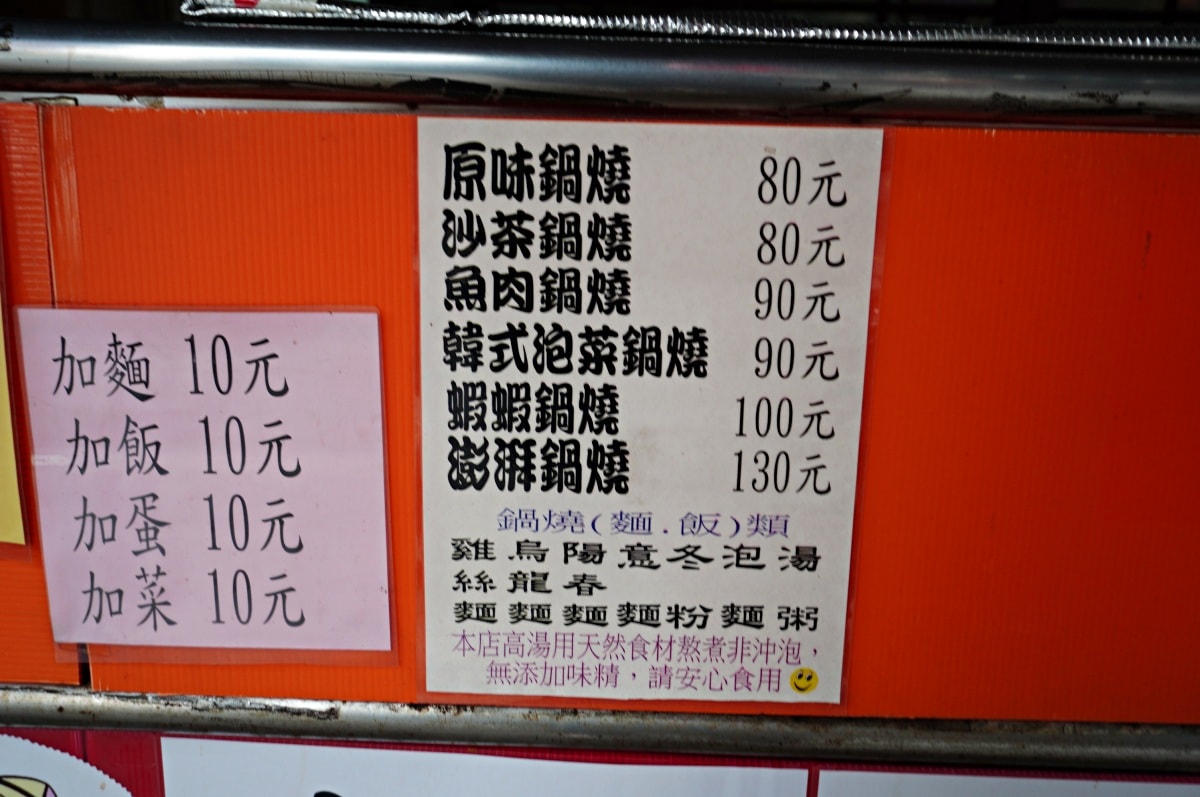 加麵 10元
加飯 10元
加蛋 10元
加菜 10元
原味鍋燒 80元
沙茶鍋燒 80元
魚肉鍋燒 90元
韓式泡菜鍋燒 90元
蝦蝦鍋燒 100元
澎湃鍋燒 130元
鍋燒(麵.飯)類
雞烏陽意冬泡湯
絲龍春
麵麵麵麵粉麵粥
本店高湯用天然食材熬煮非沖泡,
無添加味精,請安心食用